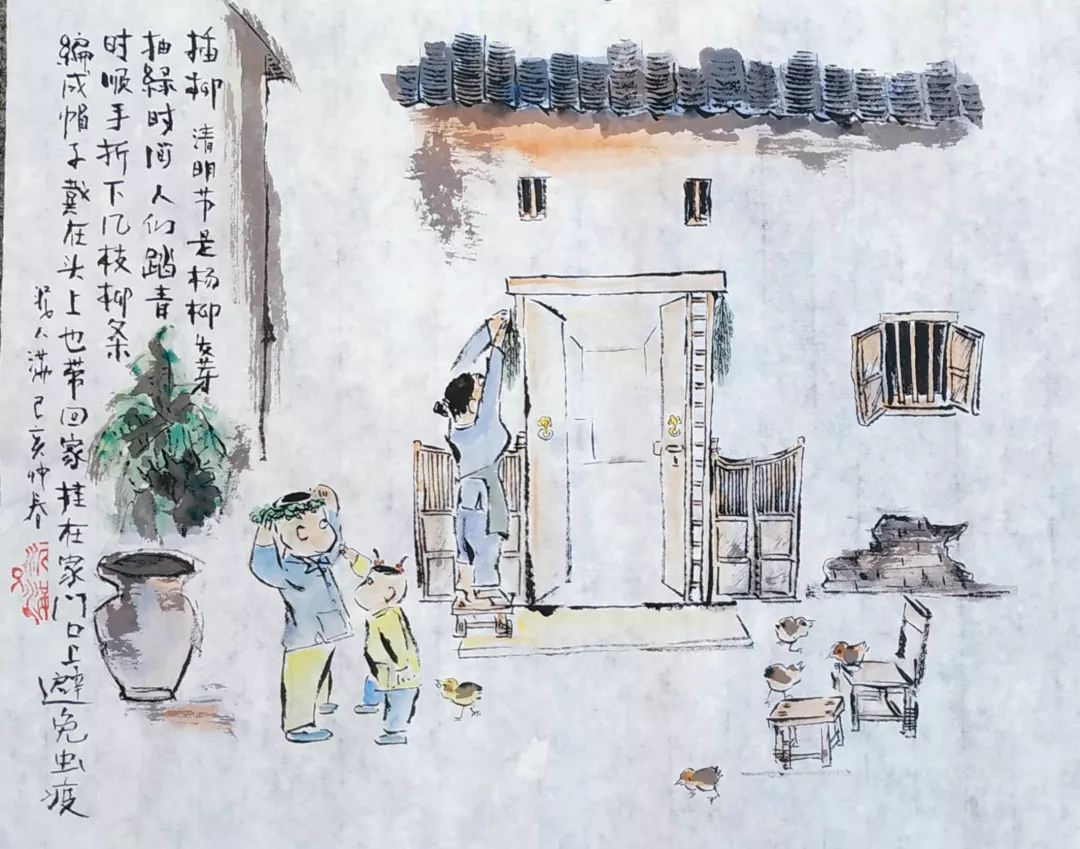 插柳 清明节是杨柳发芽
抽緑时间人们踏青
时顺手折下几枝柳条
编成帽子戴在头上也带回家挂在家门口上避免虫疫
人满己亥仲春